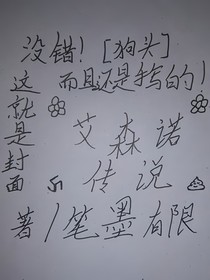 没错！[狗头]
而且还是手写的！
这就是封面
艾森诺
传说
著/笔墨有限